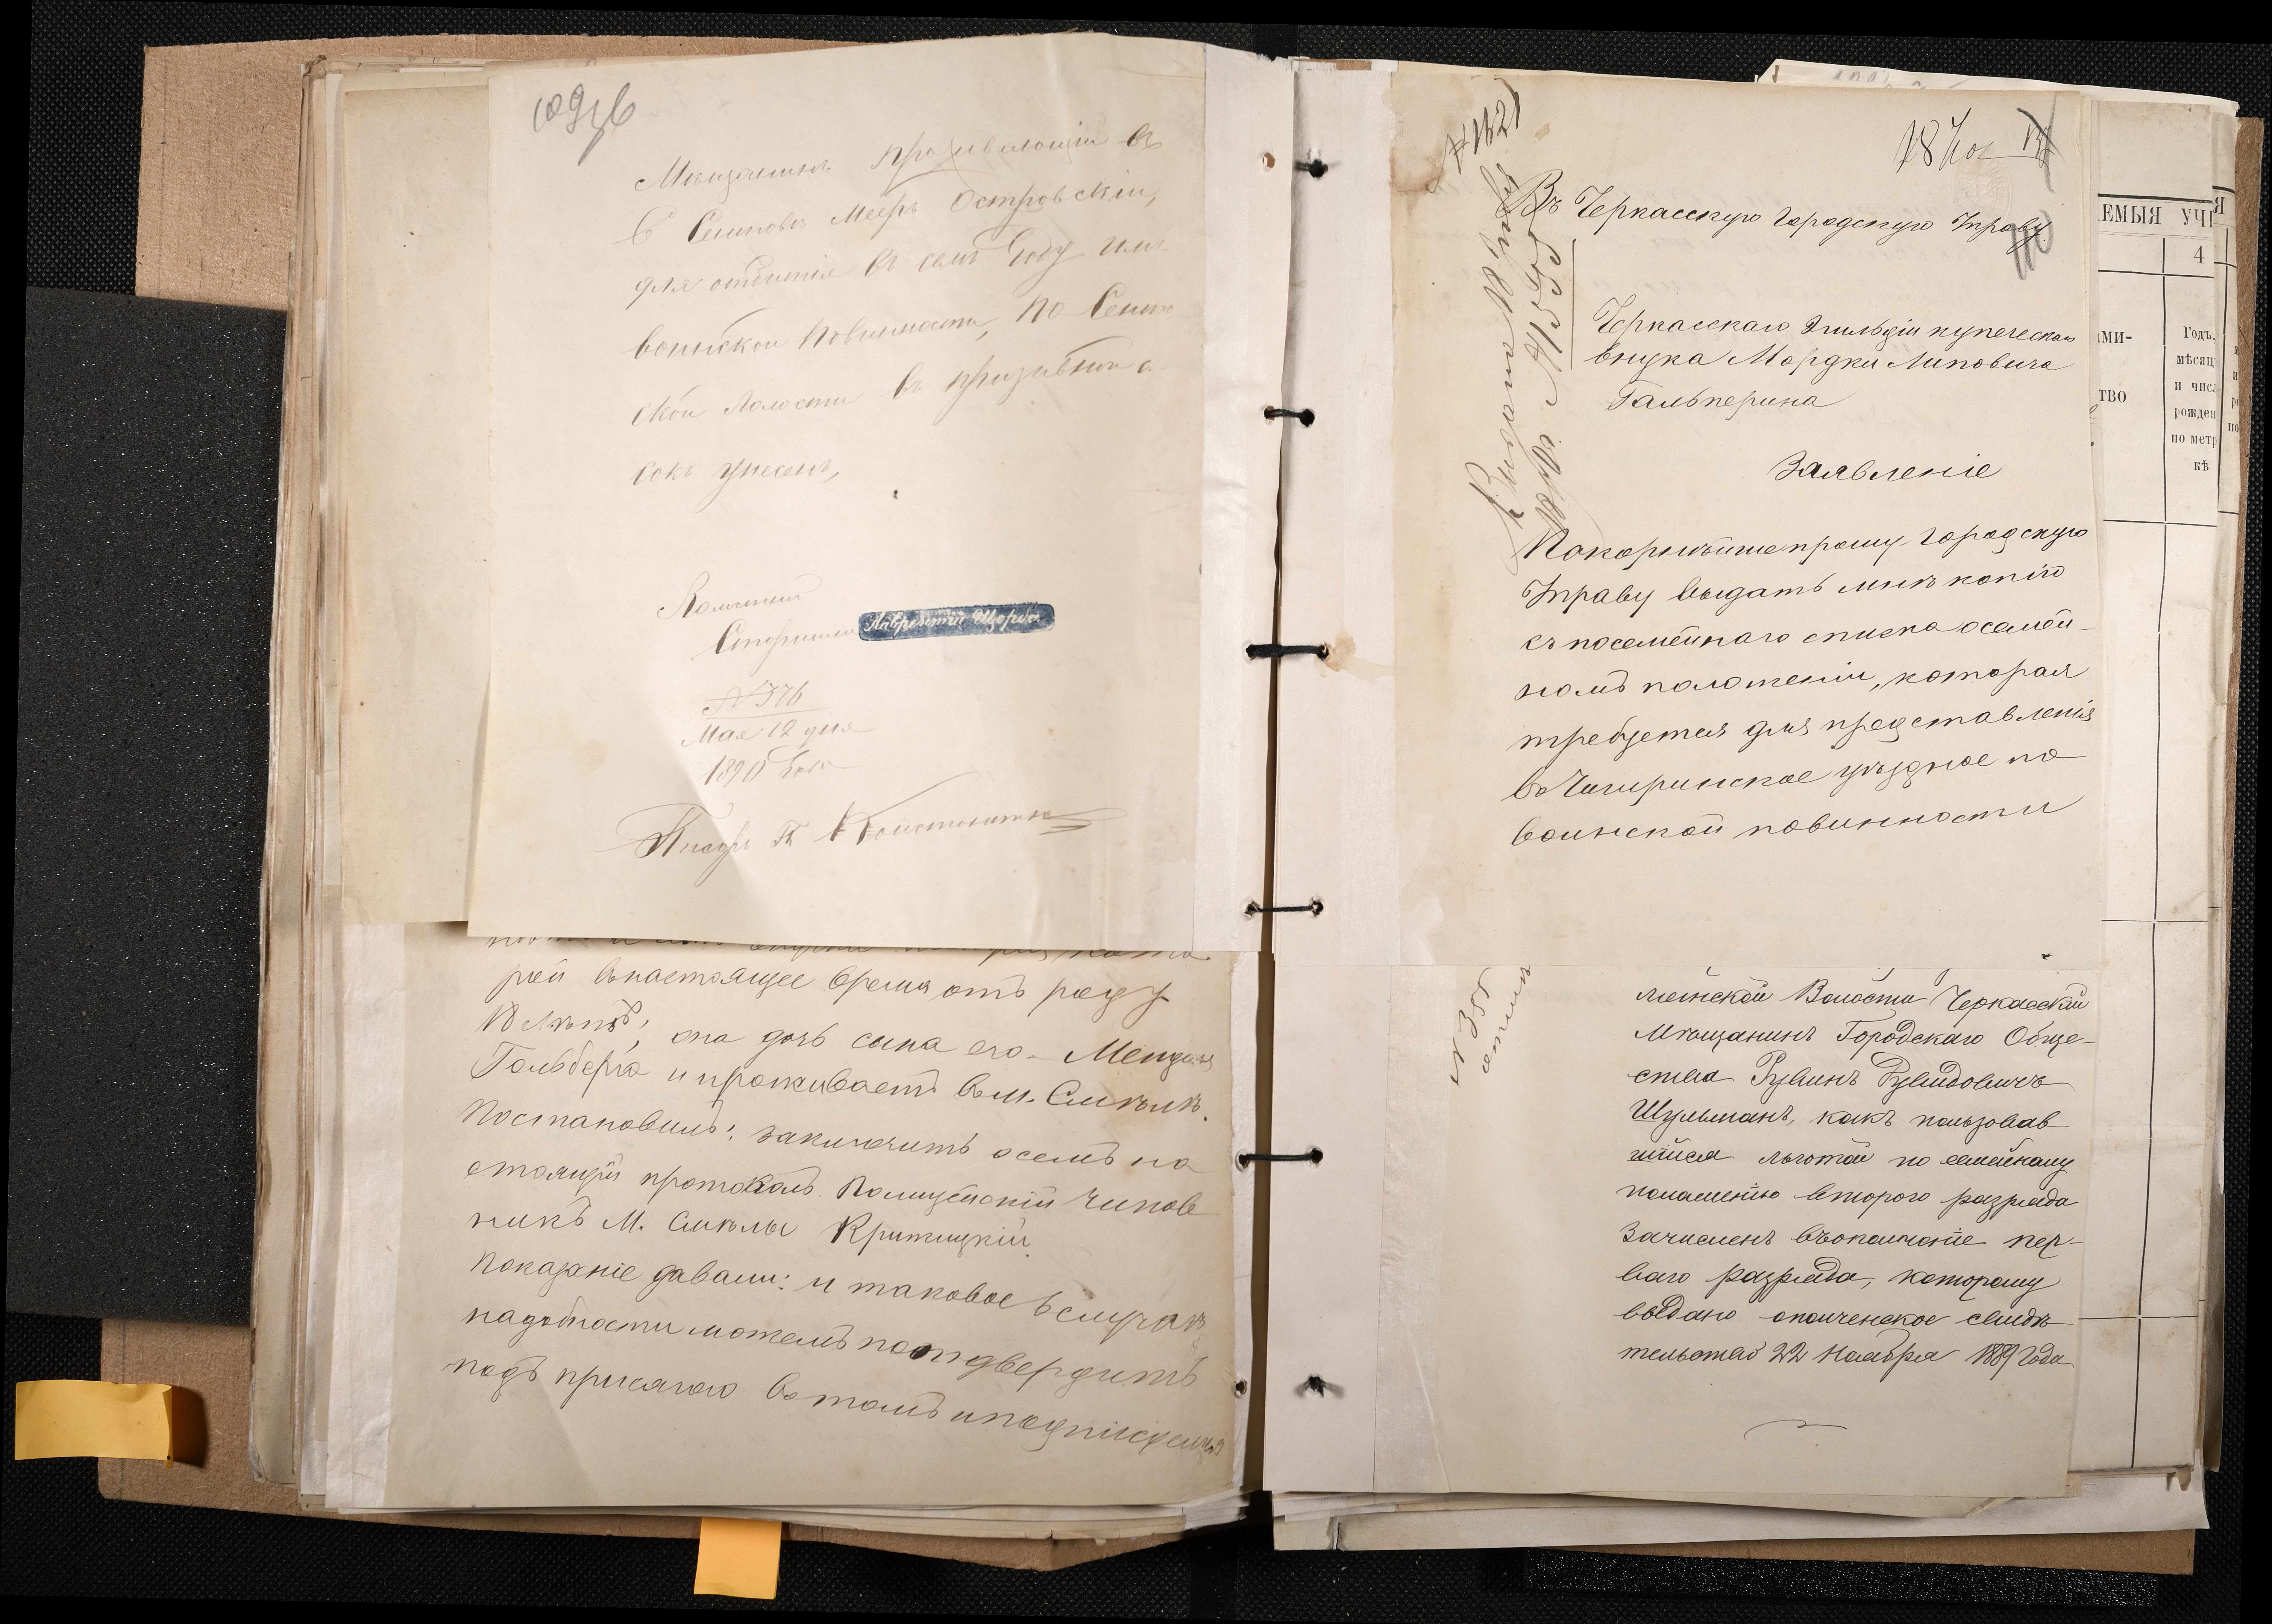 Мѣщанинъ проживающій въ
С Сенповѣ Мееръ Островскій,
для отбытія въ семъ году
воинской повинности, по
ской Волости въ призывной с
сокъ унесенъ,
Волостной
Старшина Лаврентій Щерба
№ 376
Мая 12 дня
1890 Года
Писарь К Константин
рой внастоящее время отъ роду
лѣтъ, она дочь сына его - Мендиля
Гольберга и проживаетъ вм. Смѣлѣ.
Постановилъ: заключить осемъ на
стоящій протоколъ. Полицейскій чинов
никъ М. Смѣлы Критицкій
Показаніе давали: и таковое вслучаѣ
надобности можемъ поотдвердить
подъ присягаю втомъ иподписуемся
№ 1121
18 Ноя
Въ Черкасскую Городскую Управу
Черкасскаго 2 гильдіи купеческаго
внука Мордки Липовича
Гальперина
Заявленіе
Покорнѣйше прошу Городскую
Управу выдать мнѣ копію
съ посемейнаго списка осемей-
номъ положеніи, которая
требуется для представленія
в Чигиринское уѣздное по
воинской повинности
№ 355
мейской Волости Черкасскій
Мѣщанинъ Городскаго Обще-
ства Рувинъ Рувидовичъ
Шульманъ, какъ пользовав
шійся льготой по семейному
положенію второго разряда
Зачисленъ въополченіе пер-
ваго разряда, которому
выдано ополченское свидѣ
тельство 22 Ноября 1889 Года
ЕМЫЯ УЧ
4
МИ-
ТВО
Годъ,
мѣсяц
и числ
рожден
по метр
кѣ